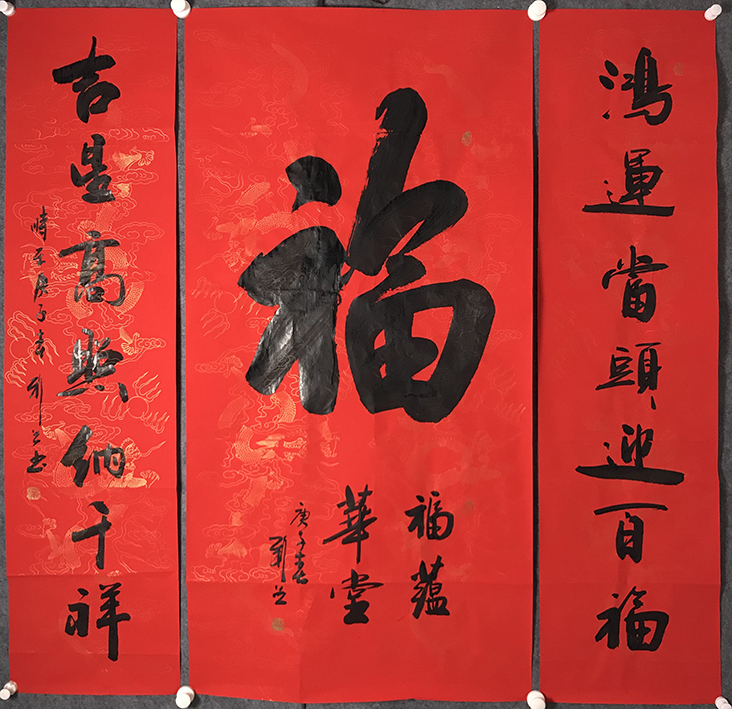 鴻運當頭迎百福
福
福蘊
華堂
庚子春
劉
吉星高照納千祥
時
庚子春